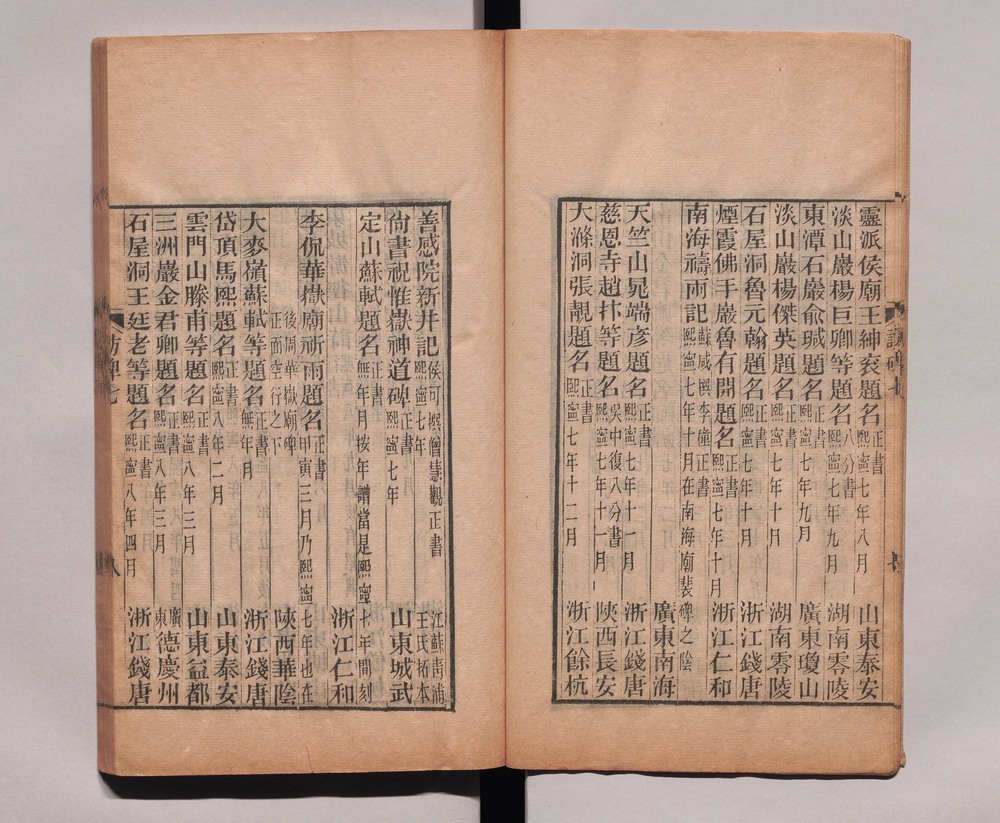 靈派侯廟王紳衮題名 正書 熙寧七年八月 山東泰安
淡山巖楊巨卿等題名 八分書 熙寧七年九月 湖南零陵
東潭石巖俞瑊題名 正書 熙寧七年九月 廣東瓊山
淡山巖楊傑英題名 正書 熙寧七年十月 湖南零陵
石屋洞魯元翰題名 正書 熙寧七年十月 浙江錢唐
煙霞佛手巖魯有開題名 正書 熙寧七年十月 浙江仁和
南海禱雨記 蘇咸撰李 正書 熙寧七年十月在南海廟裴碑之陰
廣東南海
天竺山晁端彥題名 正書 熙寧七年十一月 浙江錢唐
慈恩寺趙抃等題名 吳中復八分書 熙寧七年十一月 陝西長安
大滌洞張靚題名 正書 熙寧七年十二月 浙江餘杭
善感院新井記 侯可撰僧慧觀正書 熙寧七年 江蘇靑浦王氏拓本
尙書祝惟嶽神道碑 正書 熙寧七年 山東城武
定山蘇軾題名 正書 無年月按年譜當是熙寧七年閒刻
浙江仁和
李侃華嶽廟祈雨題名 正書 甲寅三月乃熙寧七年也在
後周華嶽廟碑正面空行之下 陝西華陰
大麥嶺蘇軾等題名 正書 無年月 浙江錢唐
岱頂馬熙題名 正書 熙寧八年二月 山東泰安
雲門山滕甫等題名 正書 熙寧八年三月 山東益都
三洲巖金君卿題名 正書 熙寧八年三月 廣東德慶州
石屋洞王廷老等題名 正書 熙寧八年四月 浙江錢唐
訪碑七
八